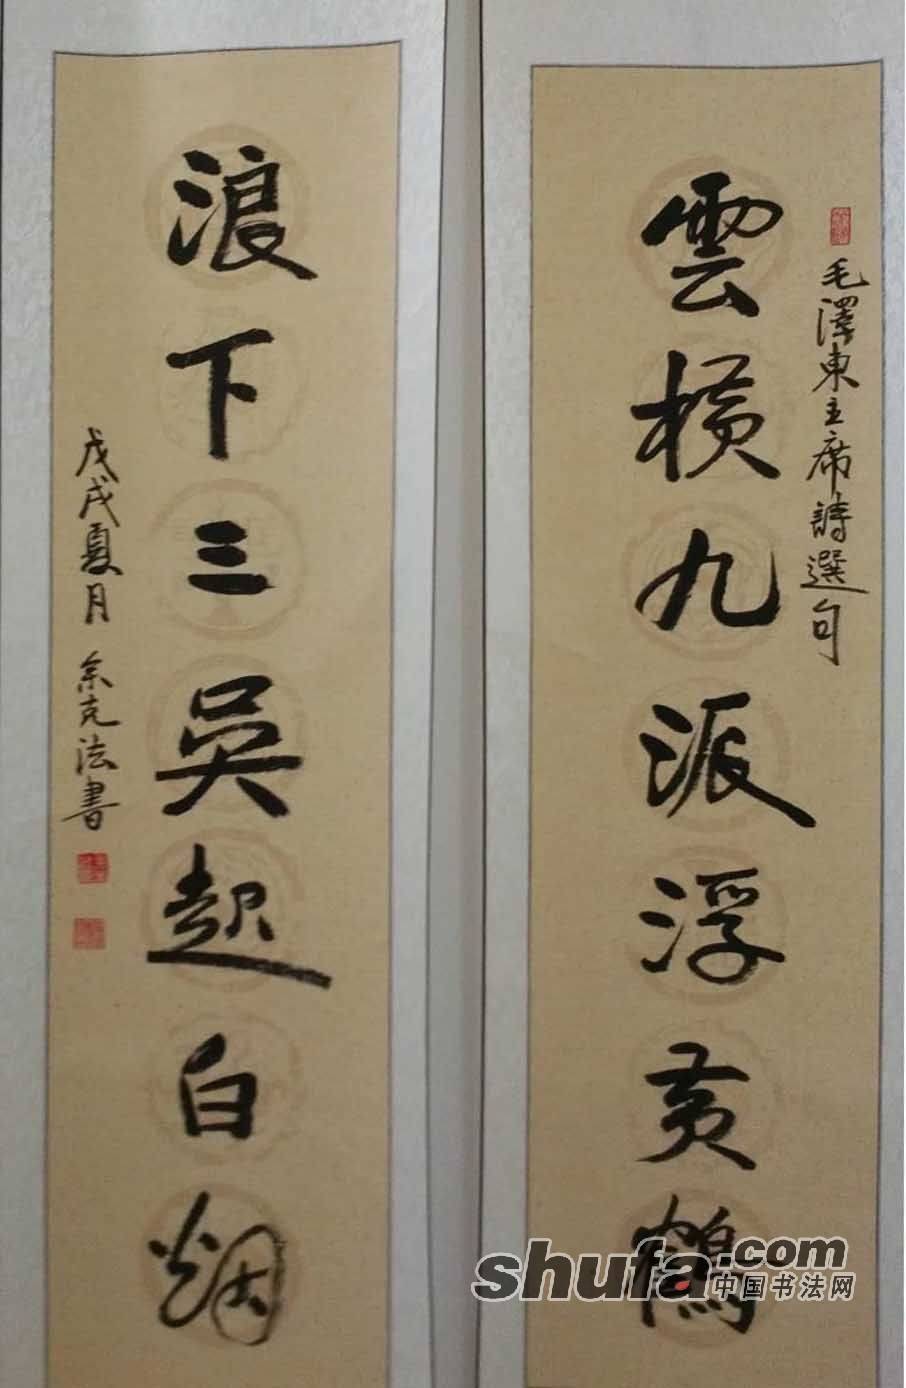 毛澤東主席詩選句
雲橫九派浮黃鶴
浪下三吳起白烟
戊戌夏月 余克法書
shufa.com
中国书法网